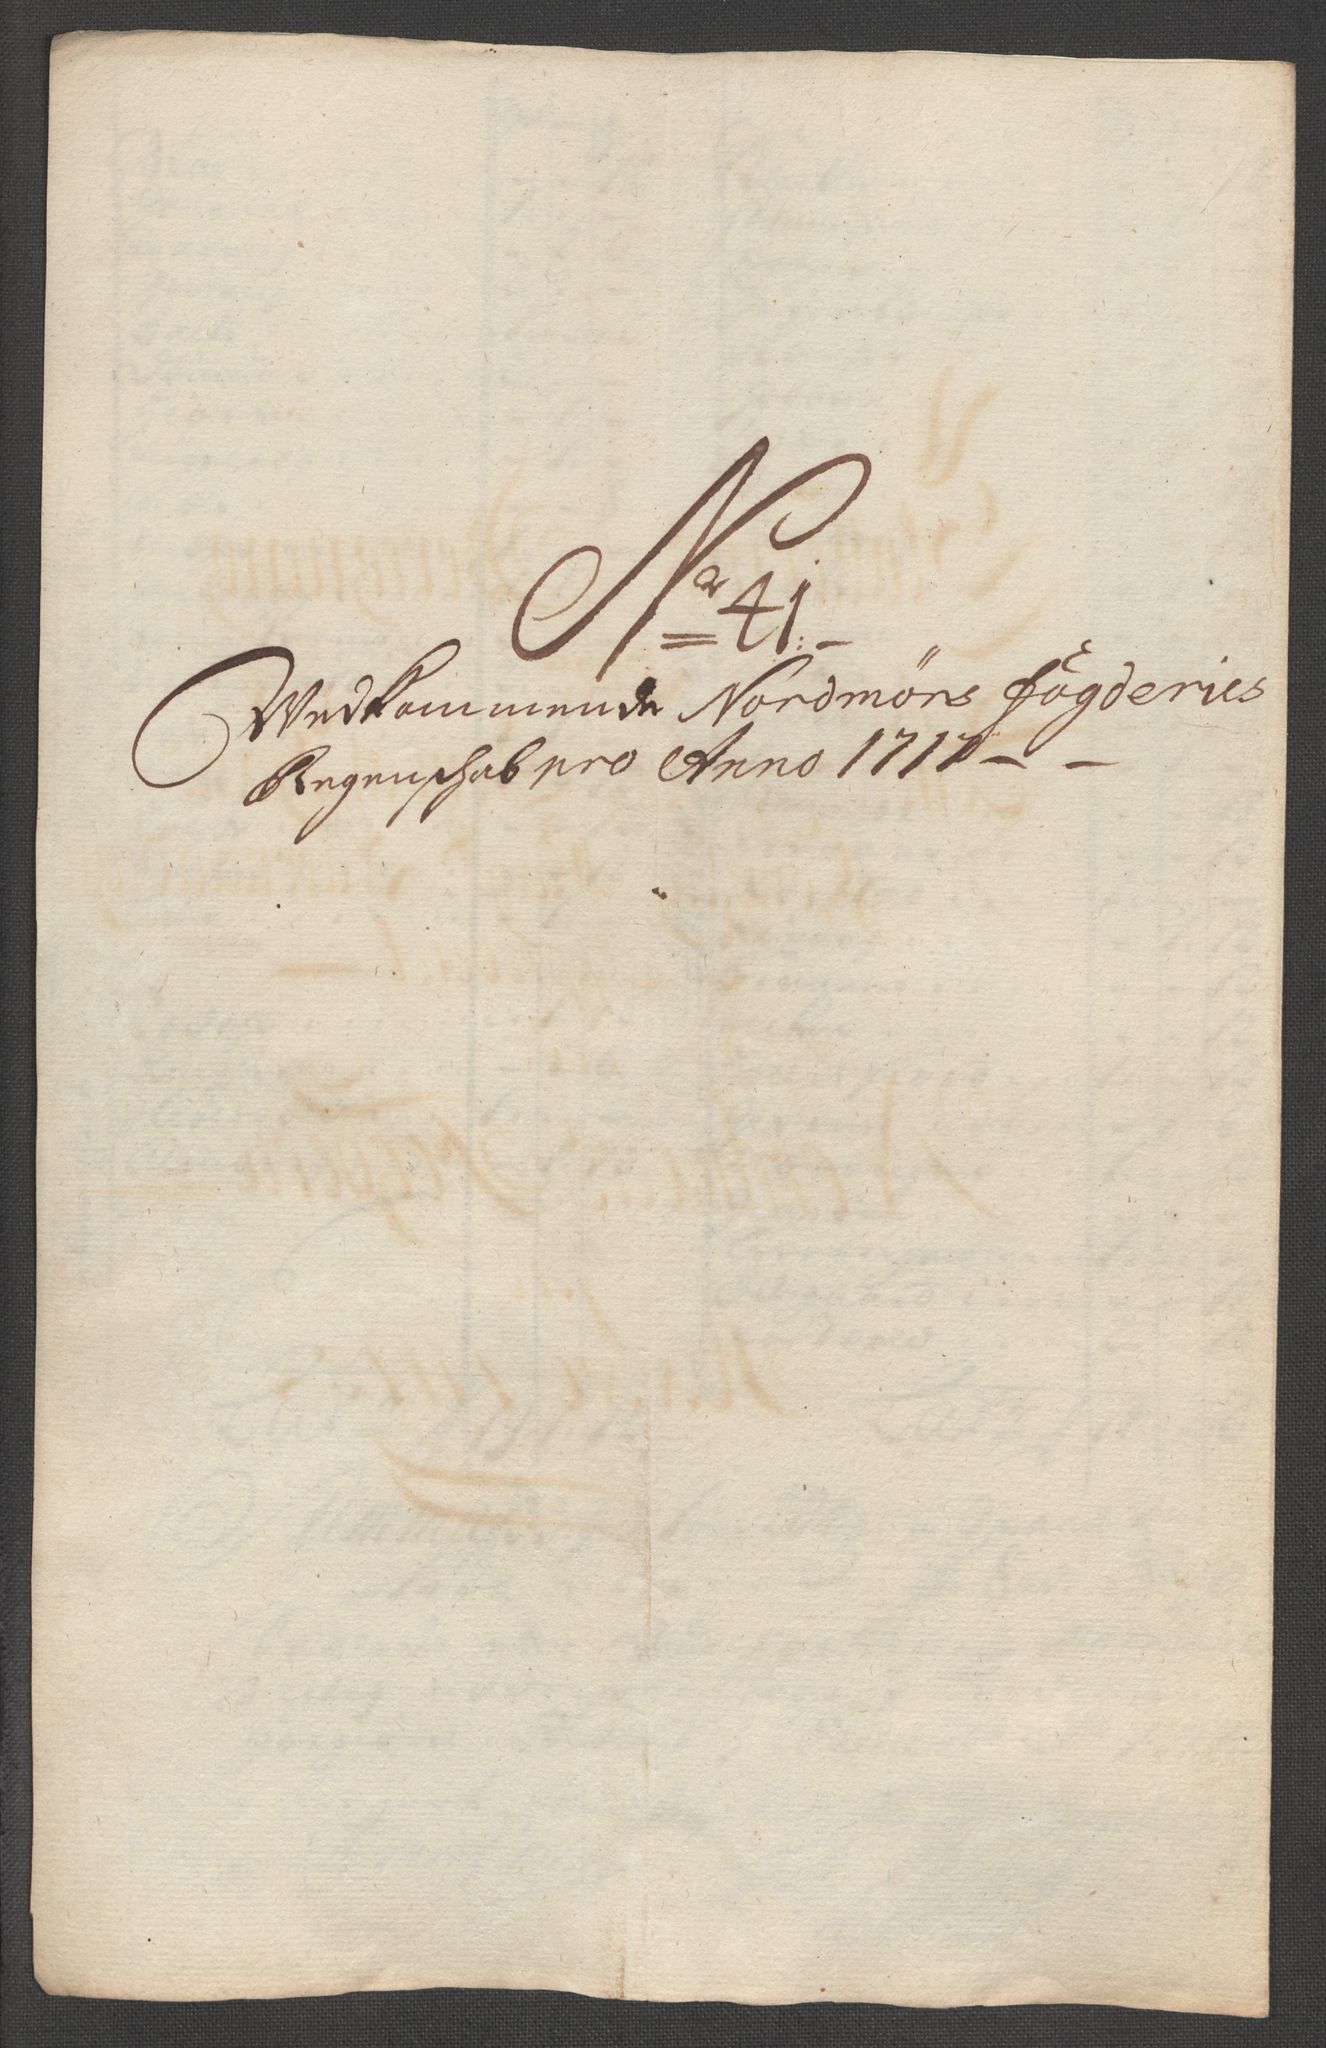 No 41.
Vedkommende Nordmörs fögderies
Regenschab pro Anno 1717